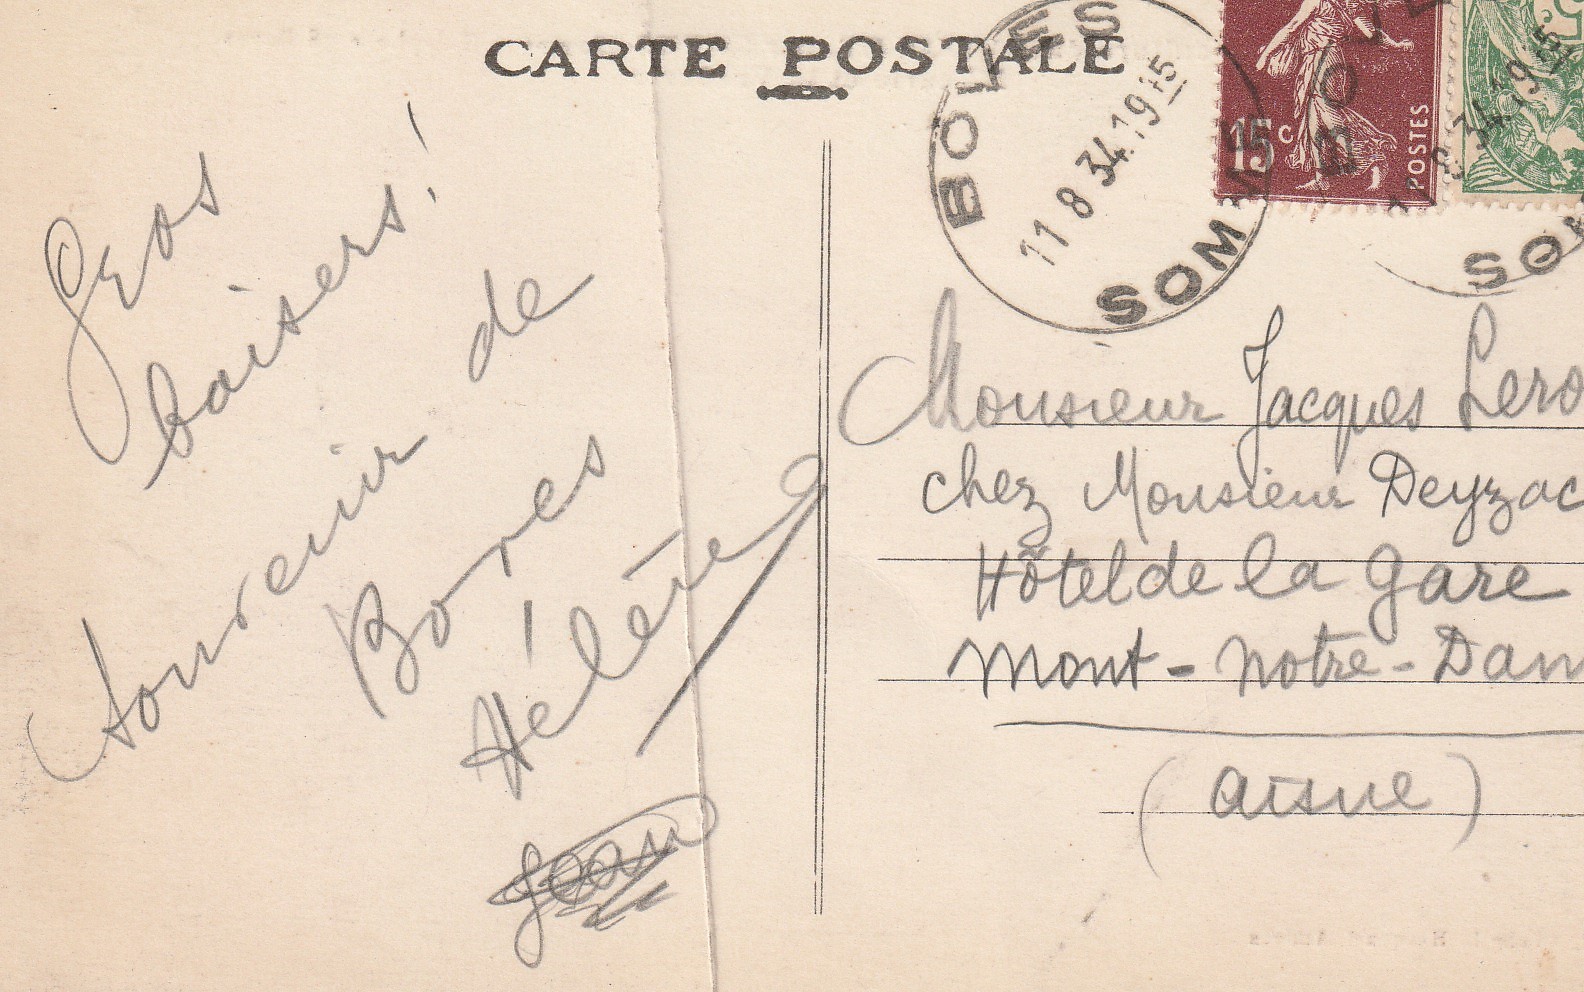 CARTE POSTALE
BOVES
11 8 34. 19 15
SOMME
15 c
POSTES
BOVE
11 8 34. 19 15
SOM
Gros
baisers!
Souvenir de
Boves
Hélène
Jean
Monsieur Jacques Lero
chez Monsieur Deyzac
Hôtel de la Gare
Mont-Notre-Dam
(Aisne)